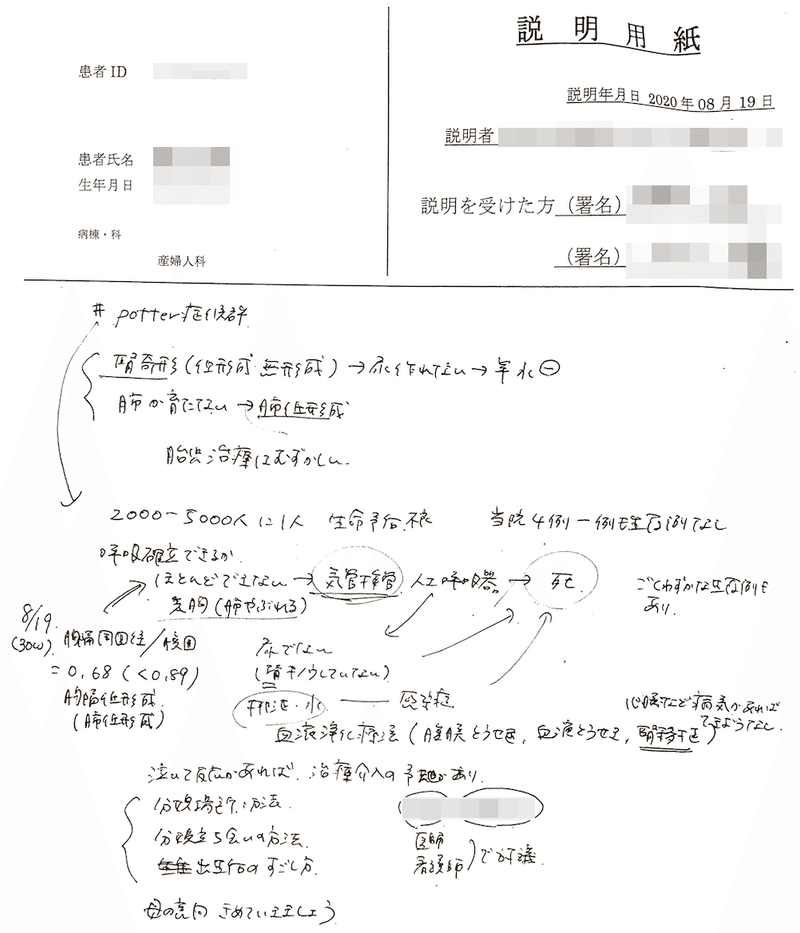 説明用紙
患者ID
説明年月日 2020年08月19日
説明者
患者氏名
生年月日
説明を受けた方 (署名)
病棟・科
産婦人科
(署名)
# potter症候群
腎奇形(低形成・無形成)→尿作れない→羊水⊖
肺が育たない→肺低形成
胎児治療はむずかしい
2000-5000人に1人 生命予後不良 当院4例 一例も生存例なし
呼吸確立できるか
ほとんどできない→気管挿管 人工呼吸器。→死
気胸(肺やぶれる)
ごくわずかな生存例もあり.
8/19.
(30w)
胸郭周囲径/腹囲
=0.68(<0.89)
胸郭低形成.
(肺低形成)
尿でない
(腎キノウしていない)
水 感染症
血液浄化療法(腹膜とうせき, 血液とうせき, 腎移植)
心臓など病気があれば
できようなし.
泣いて反応があれば, 治療介入の予地があり.
分娩場所・方法.
分娩立ち会いの方法.
出生后のすごし方.
医師
看護師
で対議
母の意向 きめていきましょう